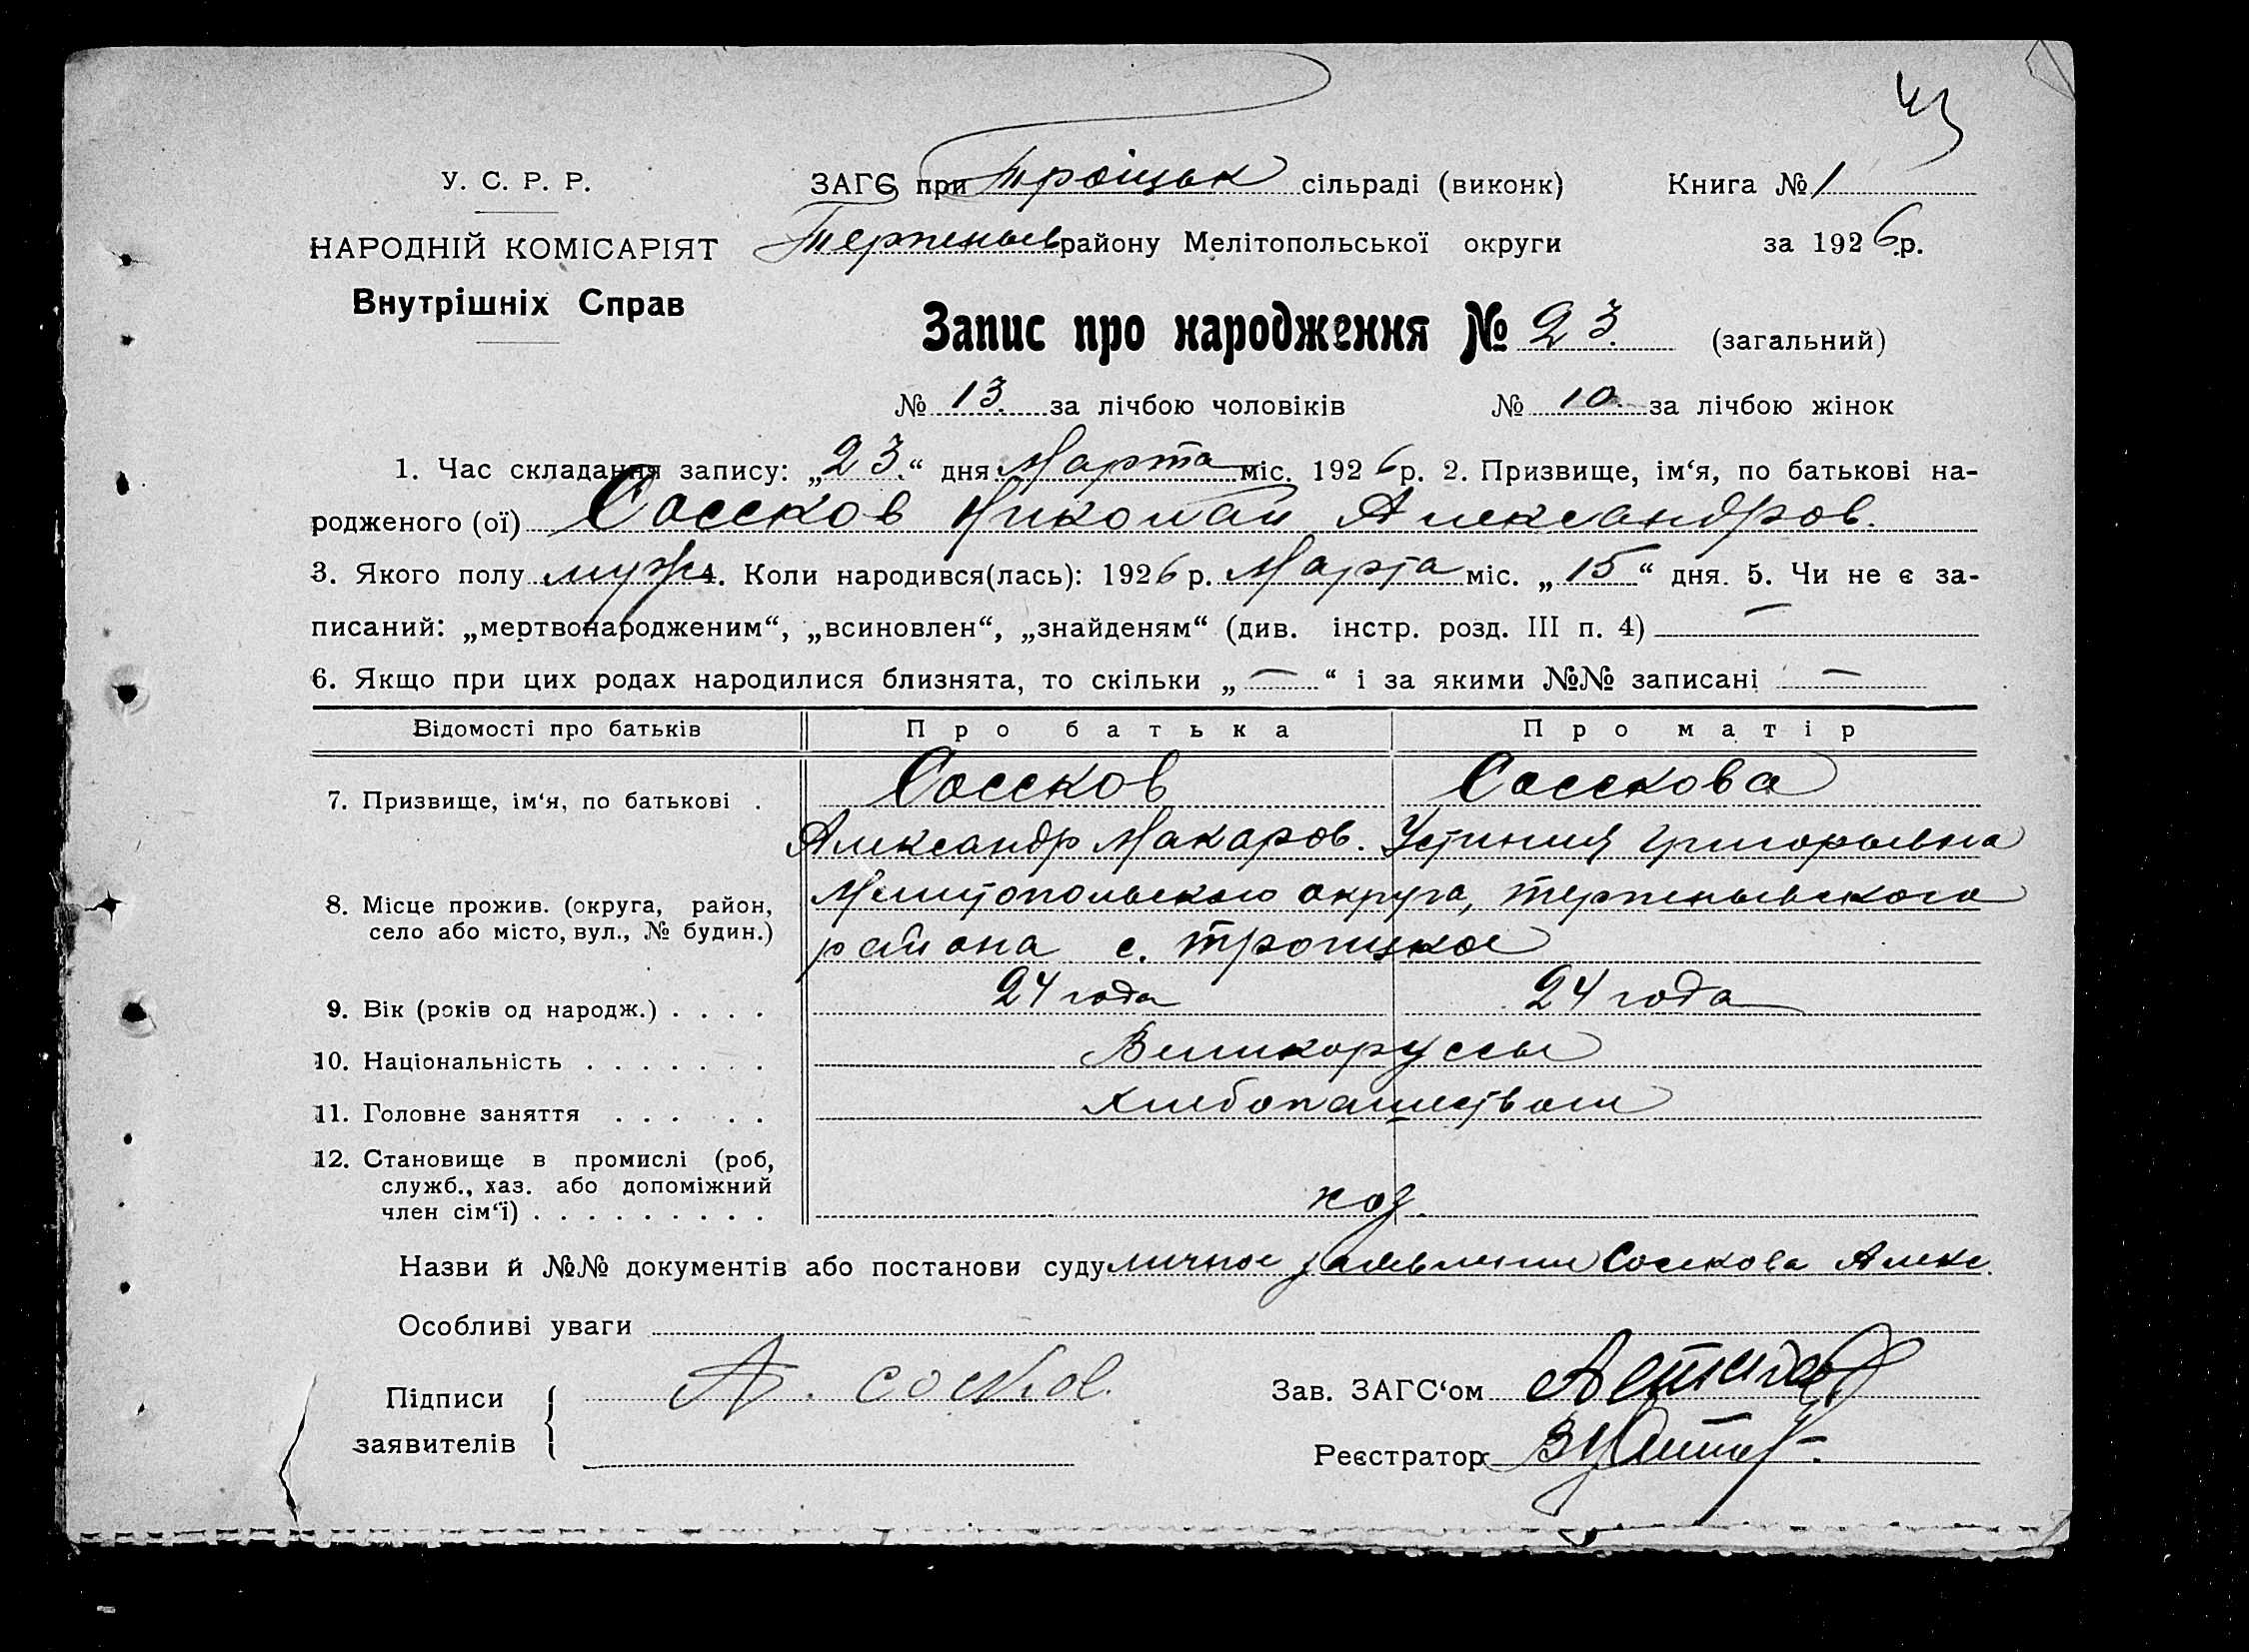 43
У. С. Р. Р.
ЗАГС при Троіцьк сільраді (виконк)
Книга № 1
НАРОДНІЙ КОМІСАРІЯТ
Терпеньев району Мелітопольської округи
за 1926 р.
Внутрішніх Справ
Запис про народження № 23. (загальний)
№ 13. за лічбою чоловіків № 10. за лічбою жінок
1. Час складання запису: „23.“ дня Марта міс. 1926 р. 2. Призвище, ім‘я, по батькові на-
родженого (ої) Соссков Николай Александров.
3. Якого полу муж. 4. Коли народився(лась): 1926 р. Марта міс. „15“ дня. 5. Чи не є за-
писаний: „мертвонародженим“, „всиновлен“, „знайденям“ (див. інстр. розд. III п. 4) —
6. Якщо при цих родах народилися близнята, то скільки „—“ і за якими №№ записані —
Відомості про батьків Про батька Про матір
7. Призвище, ім‘я, по батькові . Соссков Сосскова
Александр Макаров. Устиния Григорьевна
8. Місце прожив. (округа, район, село або місто, вул., № будин.) Мелитопольского округа, терпеньевского
района с. Троицкое
9. Вік (років од народж.) . . . . 24 года 24 года
10. Національність . . . . . . . Великоруссы
11. Головне заняття . . . . . Хлебопашеством
12. Становище в промислі (роб,
служб., хаз. або допоміжний
член сім‘ї) . . . . . . . . . хоз.
Назви й №№ документів або постанови суду личное заявление Соскова Алекс.
Особливі уваги
Підписи
заявителів
А. Соsков.
Зав. ЗАГС‘ом
Реєстратор